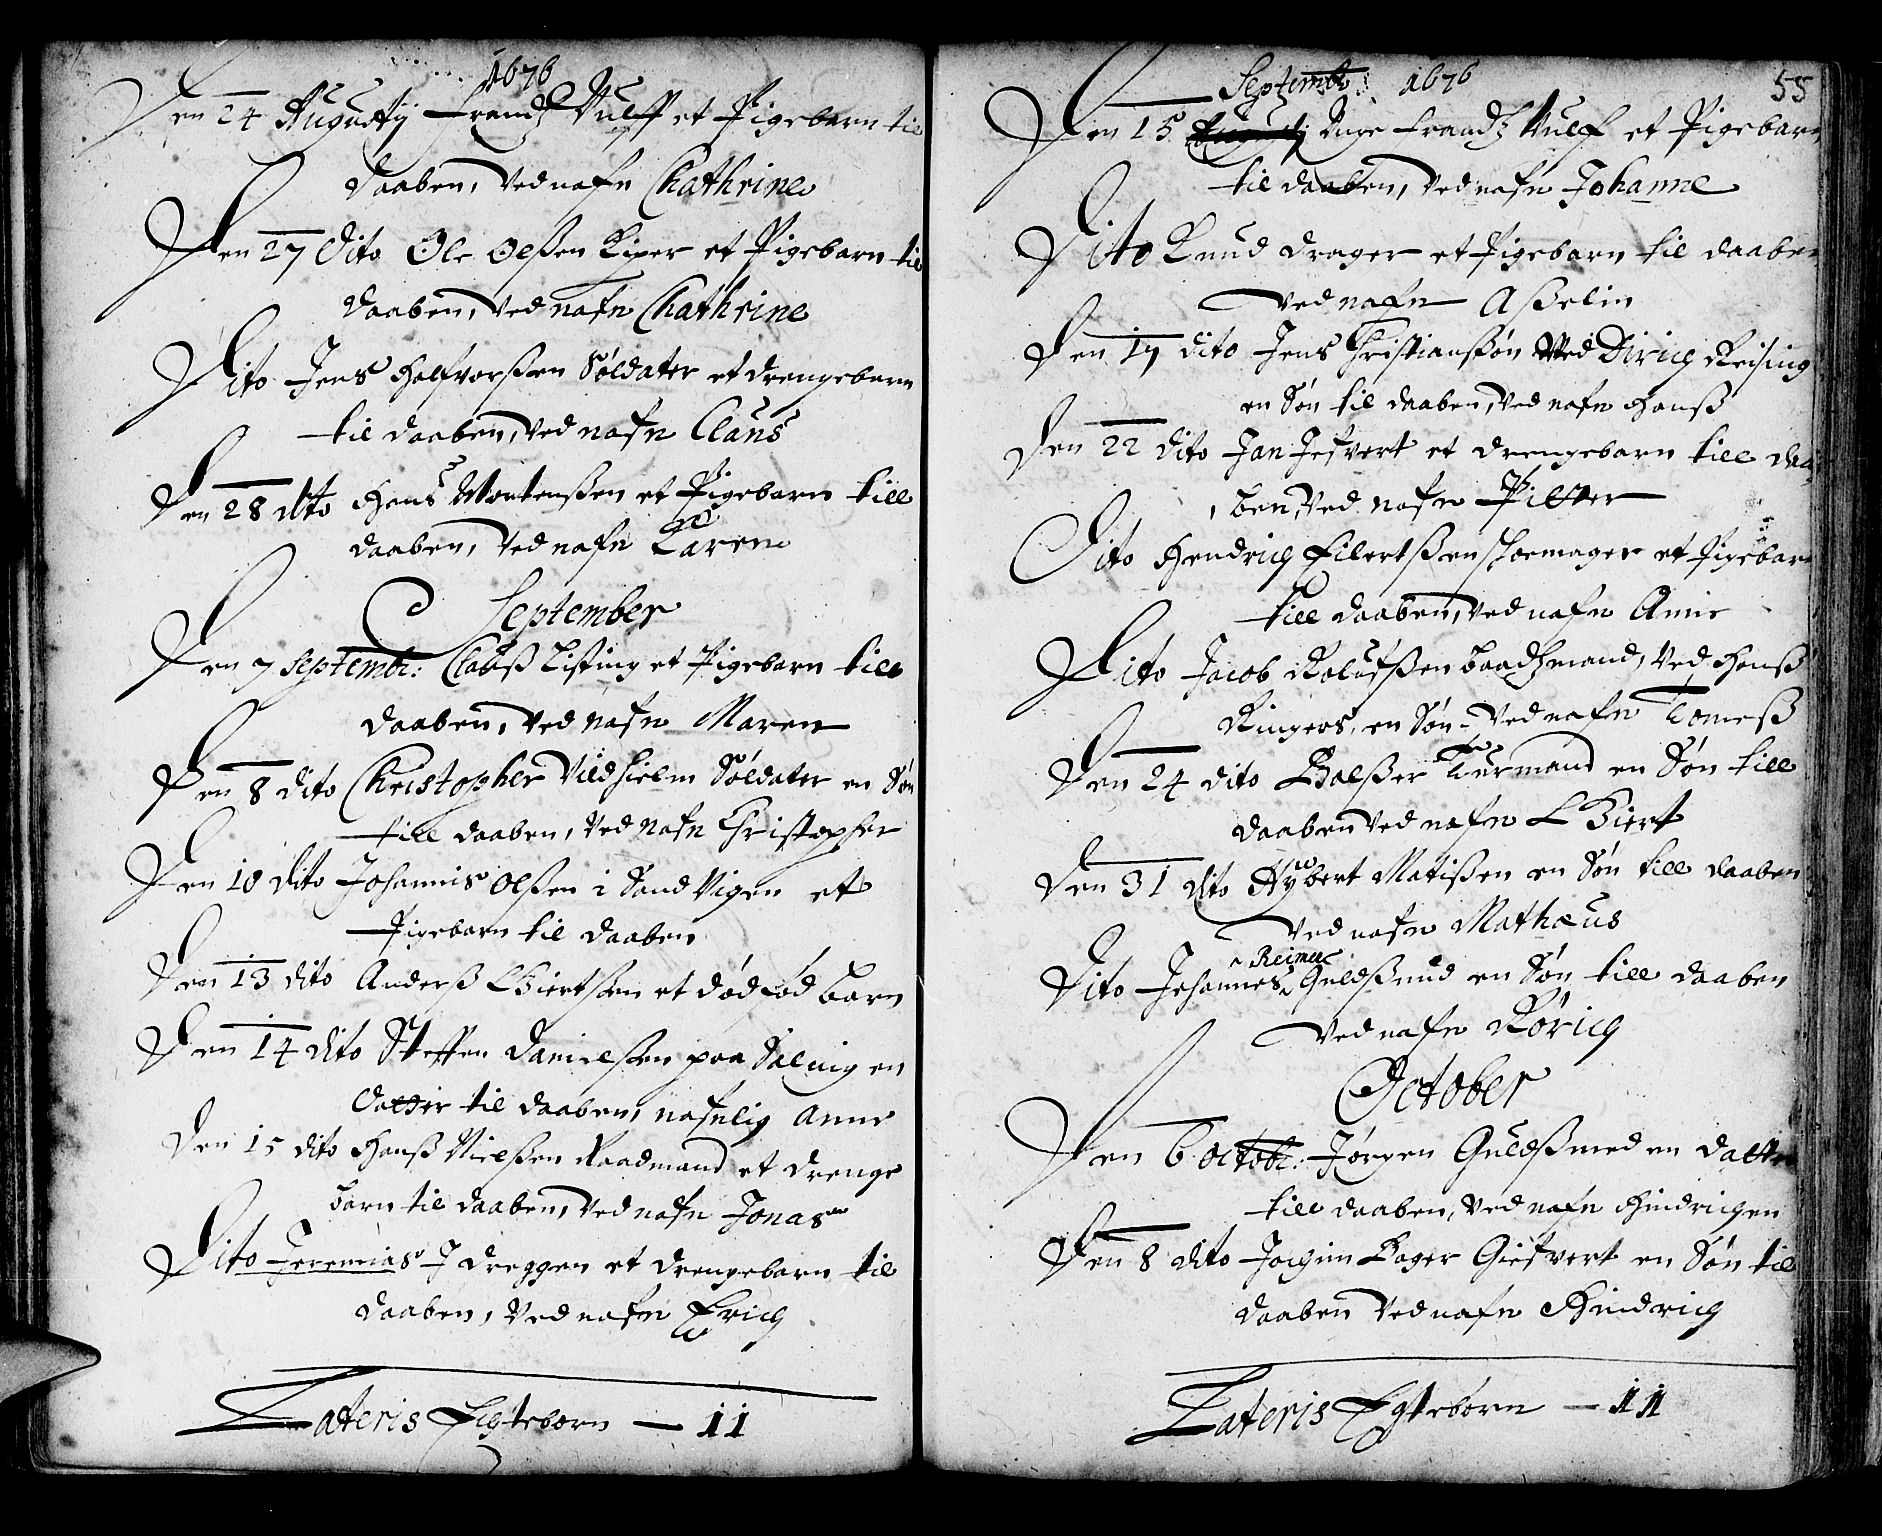 1676
Den 24 Augustij Frandz Vulff et Pigebarn til
daaben, Ved nafn Chathrine
Den 27 Dito Ole Olßen Kiper et Pigebarn til
daaben, Ved nafn Chathrine
Dito Jens Halfvorßen Soldater et drengebarn
til daaben, Ved nafn Claus
Den 28 dito Hans Mortenßen et Pigebarn till
daaben, Ved nafn Karen
September
Den 7 Septembr: Clauß Listing et Pigebarn till
daaben, Ved nafn Maren
Den 8 dito Christopher Vildhielm Soldater en Søn
till daaben, Ved nafn Christopher
Den 10 dito Johannis Olßen i Sand Vigen et
Pigebarn til daaben
Den 13 dito Anderß Giertßen et død fød barn
Den 14 dito Steffen Danielßen paa en
datter til daaben, nafnlig Anne
Den 15 dito Hanß Nielßen Raadmand et drenge
barn til daaben, Ved nafn Jonas
Dito Jeremias J dreggen et drengebarn til
daaben, Ved nafn Erich
Lateris Egteborn — 11
Septembr: 1676
55
Den 15 Augustij Unge Frandz Vulf et Pigebarn
til daaben, Ved nafn Johanne
Dito Knud drager et Pigebarn til daaben
Ved nafn Aßelin
Den 17 dito Jens Christianßøn Ved Dirich Reising
en Søn til daaben, Ved nafn Hanß
Den 22 dito Jan Jefvert et drengebarn till daa
ben, Ved nafn Pitter
Dito Hendrich Eilertßen skoemager et Pigebarn
till daaben, Ved nafn Anne
Dito Jacob Rolufßen baadzmand, Ved Hanß
Ringers, en Søn Ved nafn Tomeß
Den 24 dito Balßer Kurmand en Søn till
daaben Ved nafn Giert
Den 31 dito Hybert Matißen en Søn till daaben
Ved nafn Mathæus
Reimer
Dito Johannes Guldßmid en Søn till daaben
Ved nafn Rørich
October
Den 6 octobr: Jørgen Guldßmed en datter
till daaben, Ved nafn Hindrichen
Den 8 dito Jochim bager Giefvert en Søn til
daaben Ved nafn Hindrich
Lateris Egteborn — 11